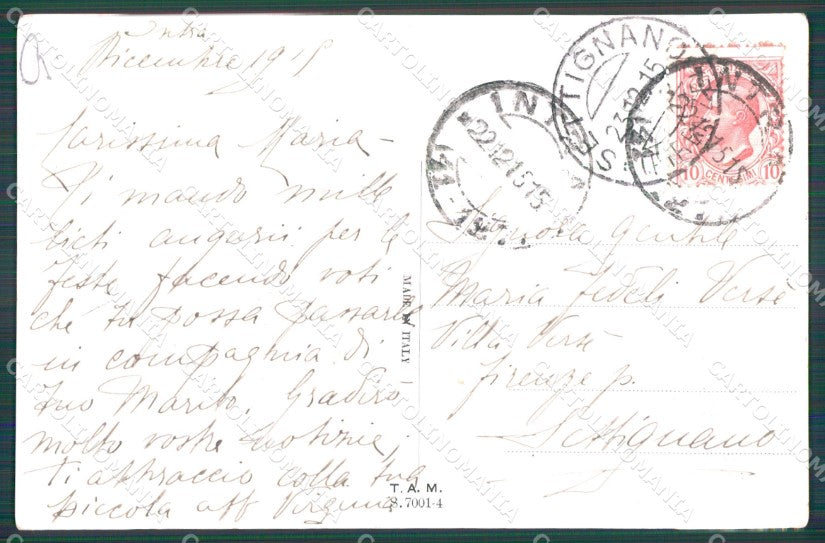 Intra
Dicembre 1915
Carissima Maria-
Ti mando mille
lieti augurii per le
feste facendo voti
che tu possa passarle
in compagnia di
tuo Marito. Gradirò
molto vostre notizie,
Ti abbraccio colla tua
piccola aff Virginia
MADE IN ITALY
T. A. M.
S. 7001-4
INTRA
22.12.15 15
SETTIGNANO
23.12.15
INTRA
10 CENTESIMI 10
Signora Gentile
Maria Fedeli Versé
Villa Versé
Firenze p.
Settignano
CARTOLINOMANIA